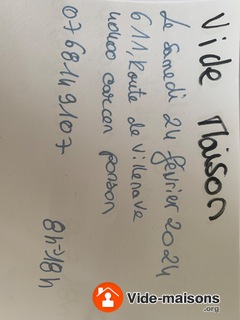 Vide Maison
Le Samedi 24 février 2024
611, Route de Villenave
40400 carcen ponson
0768149107
8h-18h
Vide-maisons
.org